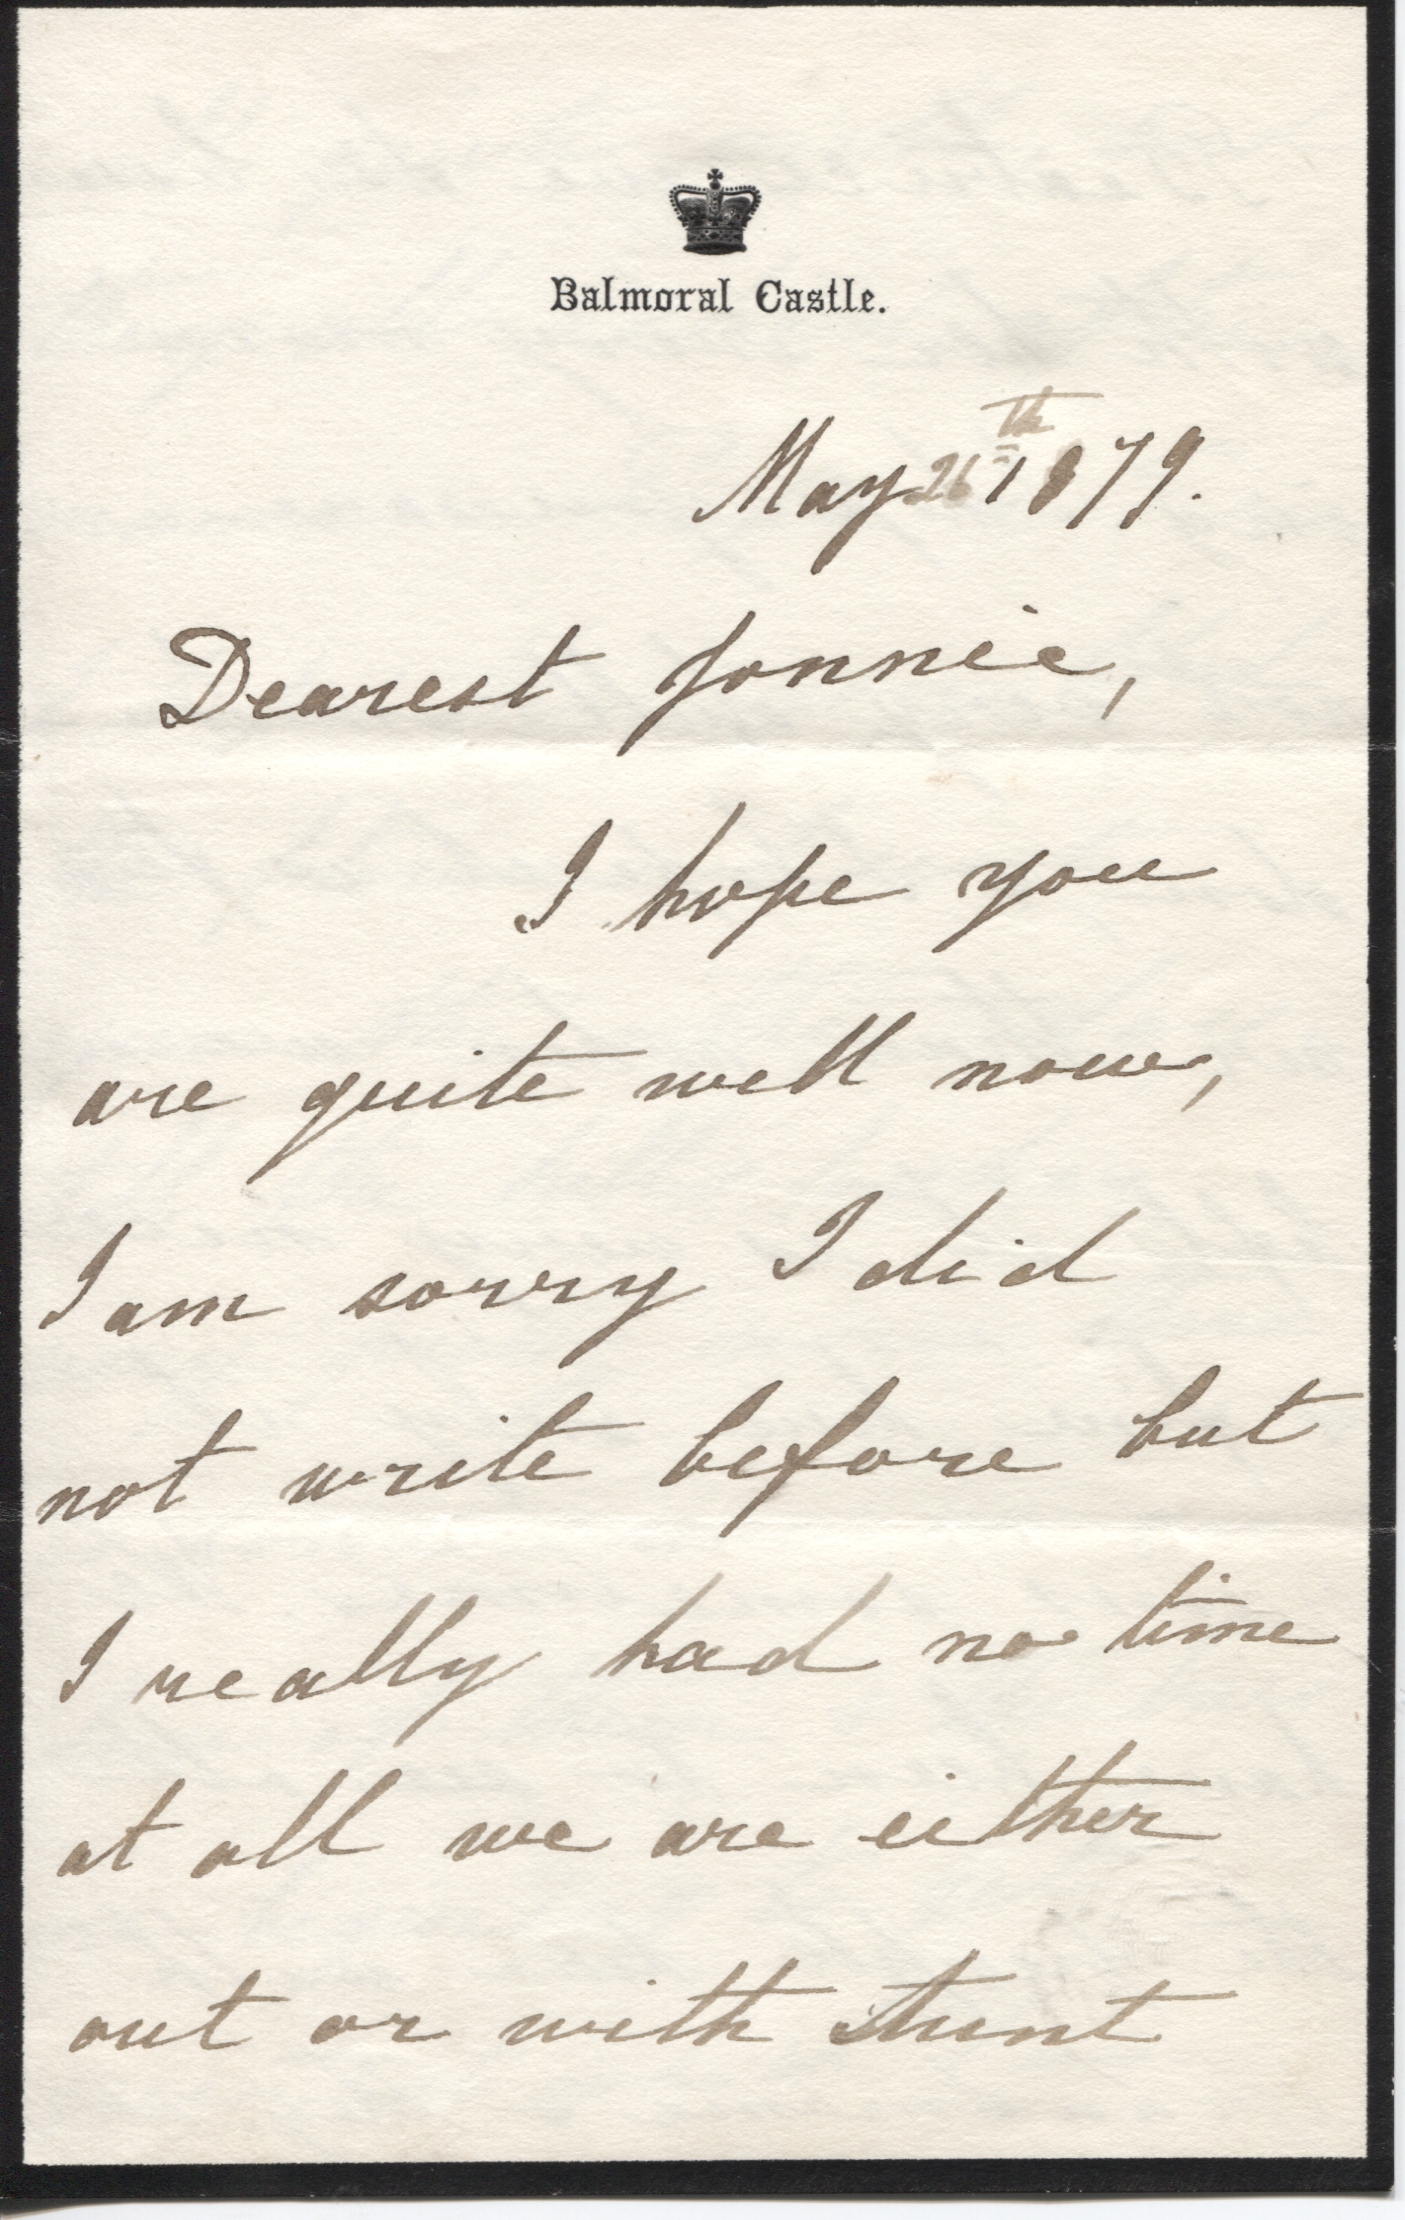 Balmoral Castle.
May 26th 1879.
Dearest Jonnie,
I hope you
are quite well now,
I am sorry I did
not write before but
I really had no time
at all we are either
out or with Aunt